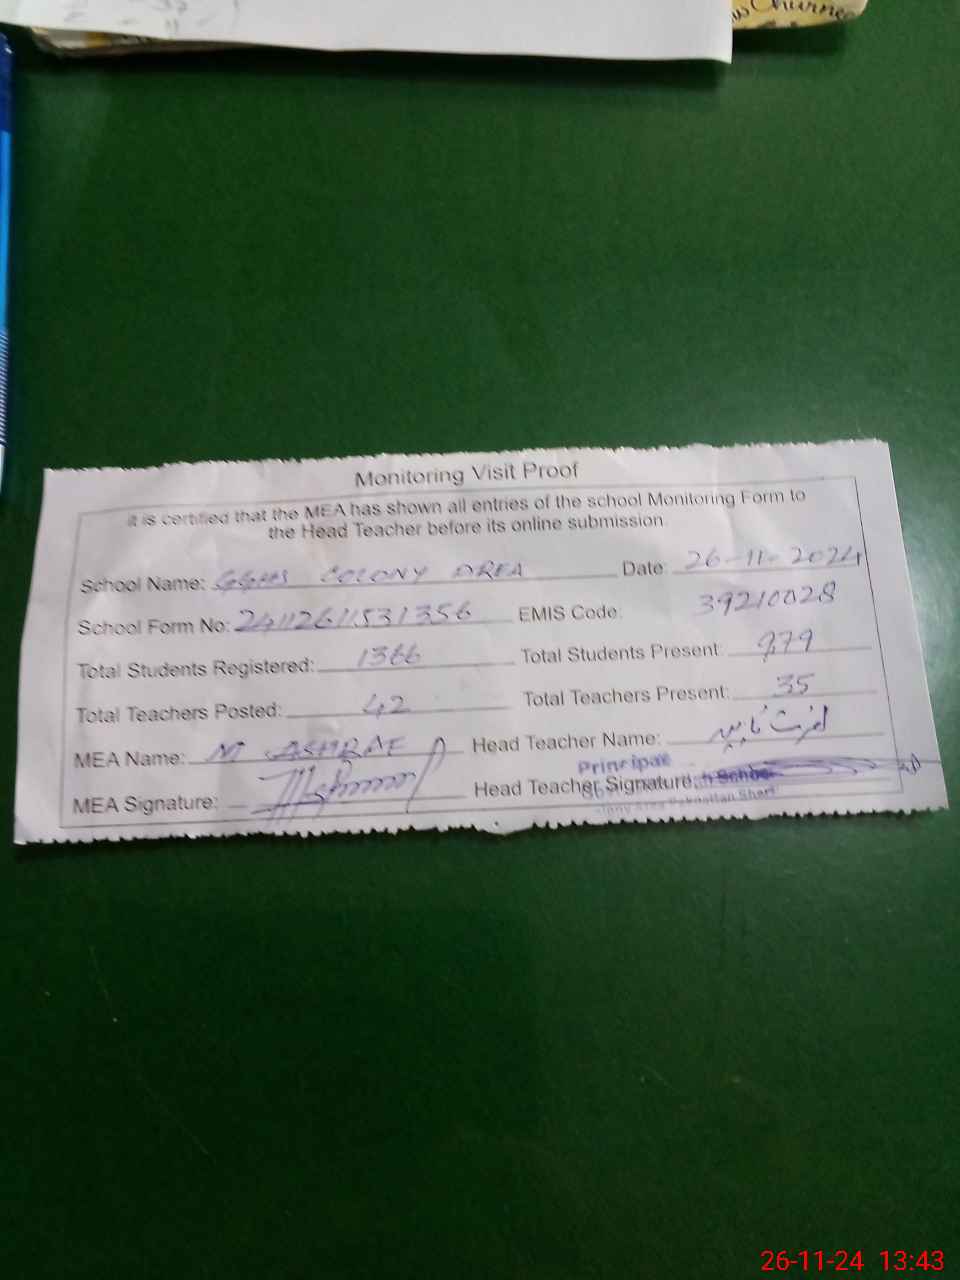 Churne
Monitoring Visit Proof
it is certified that the MEA has shown all entries of the school Monitoring Form to
the Head Teacher before its online submission.
School Name: GGHSS COLONY AREA Date: 26-11-2024
School Form No: 2411261531356 EMIS Code: 39210028
Total Students Registered: 1366 Total Students Present: 979
Total Teachers Posted: 42 Total Teachers Present: 35
MEA Name: M ASHRAF Head Teacher Name:
MEA Signature: Head Teacher Signature:
Principal
26-11-24 13:43